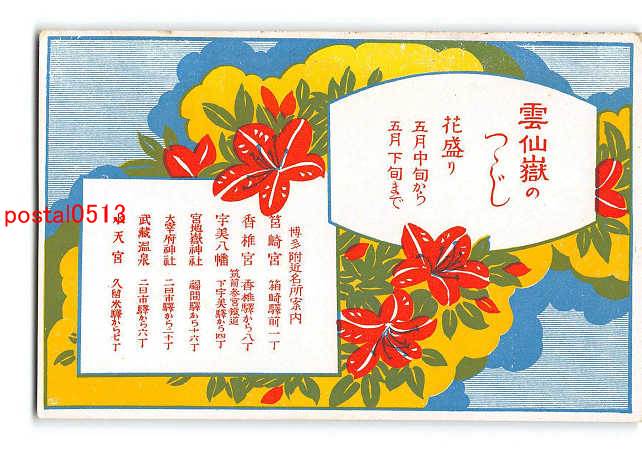 雲仙嶽の
つゝじ
花盛り
五月中旬から
五月下旬まで
博多附近名所案内
筥崎宮 箱崎驛前一丁
香椎宮 香椎驛から八丁
宇美八幡 筑前参宮鐵道 下宇美驛から四丁
宮地嶽神社 福間驛から十六丁
太宰府神社 二日市驛から二十丁
武藏温泉 二日市驛から六丁
天宮 久留米驛から七丁
postal0513